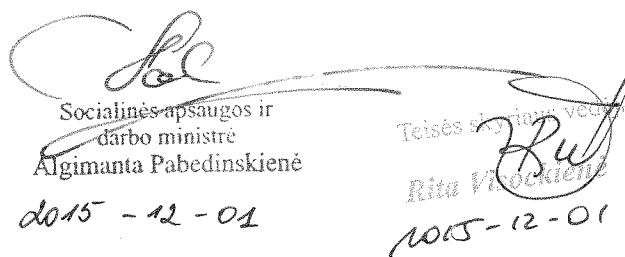 Socialinės apsaugos ir
darbo ministrė
Algimanta Pabedinskienė
2015 - 12 - 01
Teisės skyriaus
Rita Visockienė
2015 - 12 - 01